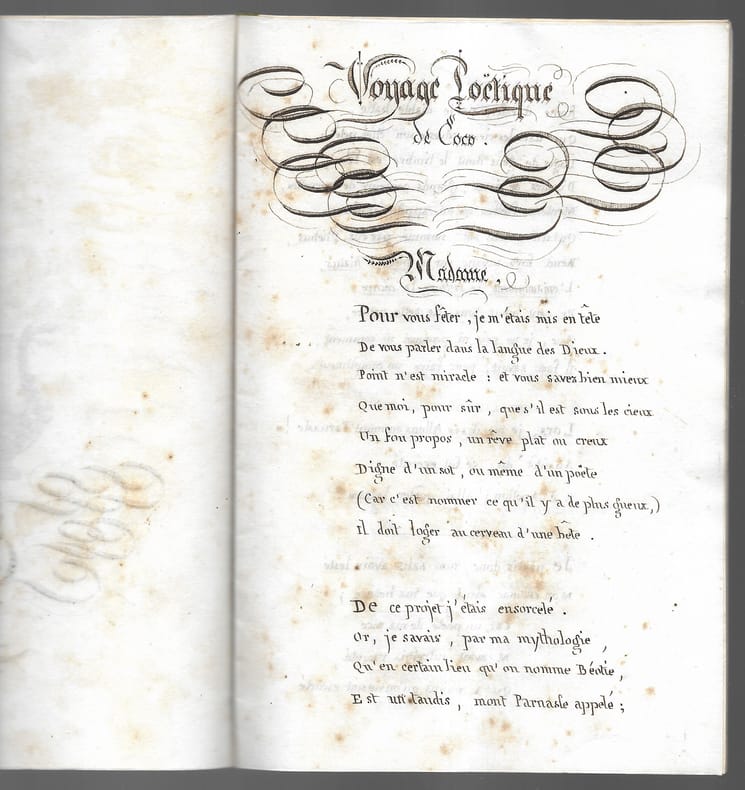 Voyage Poëtique
de Coco.
Madame.
Pour vous fêter, je m'étais mis en tête
De vous parler dans la langue des Dieux.
Point n'est miracle : et vous savez bien mieux
Que moi, pour sûr, que s'il est sous les cieux
Un fou propos, un rêve plat ou creux
Digne d'un sot, ou même d'un poëte
(Car c'est nommer ce qu'il y a de plus gueux,)
Il doit loger au cerveau d'une bête.
De ce projet j'étais ensorcelé.
Or, je savais, par ma mythologie,
Qu'en certain lieu qu'on nomme Béotie,
Est un taudis, mont Parnasse appelé ;